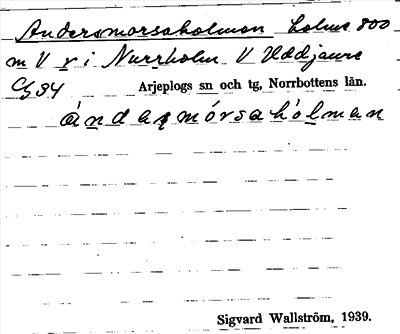 Andersmorsaholmen holme 800
m V r i Nurrholm V Uddjaure
Cg 34 Arjeplogs sn och tg, Norrbottens län.
ándaʂmórsahólman
Sigvard Wallström, 1939.